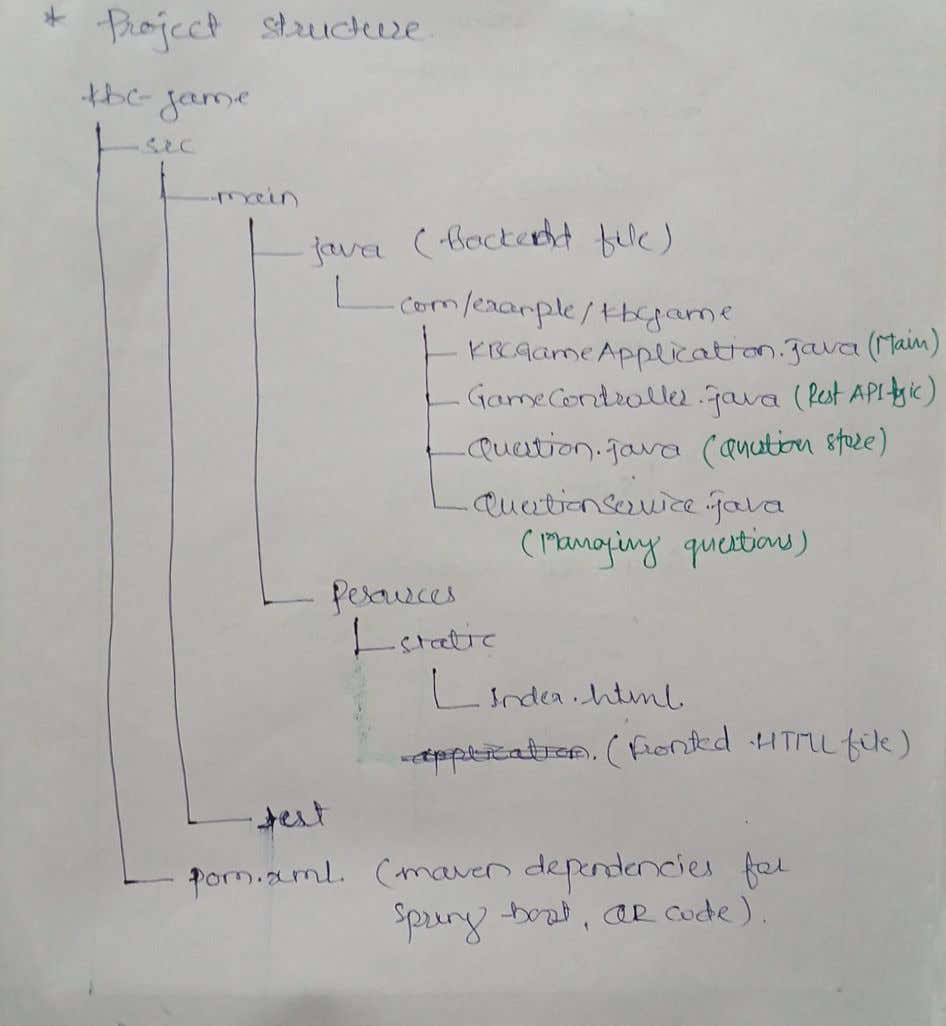 * Project structure.
kbc-game
src
main
java (Backend file)
com/example/kbcgame
KBCgameApplication.java (Main)
GameController.java (Rest API logic)
Question.java (Question store)
QuestionService.java
(Managing questions)
Resources
static
index.html.
application. (Fronted .HTML file)
test
pom.xml. (maven dependencies for
spring boot, QR code).